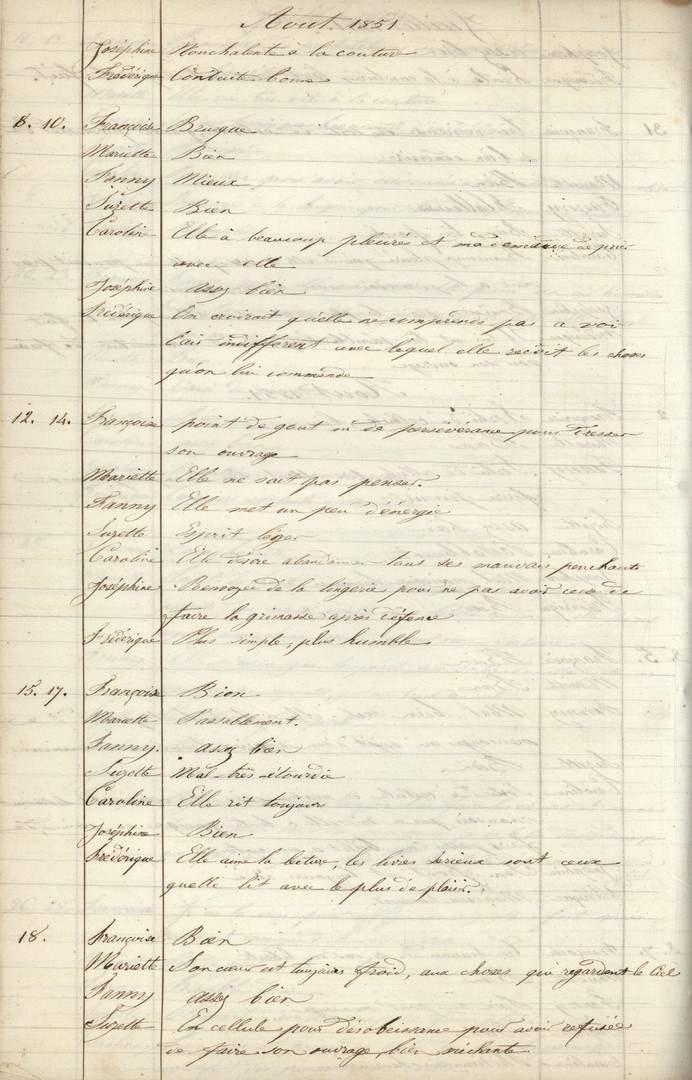 Aout. 1851
Joséphine Nonchalente à la couture
Frédérique Conduite bonne
8. 10. Françoise Brusque
Mariette Bien
Fanny Mieux
Suzette Bien
Caroline Elle à beaucoup pleurés et ma demandé de prier
avec elle
Joséphine assez bien
Frédérique On croirait qu'elle ne comprends pas a voir
l'air indifferent avec lequel elle reçoit les choses
qu'on lui commende
12. 14. Françoise point de gout ni de persévérance pour dresser
son ouvrage
Mariette Elle ne sait pas penser.
Fanny Elle met un peu d'énergie
Suzette Esprit léger
Caroline Elle désire abandonner tous ses mauvais penchants
Joséphine Renvoyée de la lingerie pour ne pas avoir de
faire la grimasse après défence
Frédérique Plus simple, plus humble
15. 17. Françoise Bien
Mariette Passablement.
Fanny. assez bien
Suzette Mal très étourdie
Caroline Elle rit toujours
Joséphine Bien
Frédérique Elle aime la lecture, les livres serieux sont ceux
quelle lit avec le plus de plaisir.
18. Françoise Bien
Mariette Son cœur est toujours froid, aux choses qui regardent le Ciel
Fanny assez bien
Suzette En cellule pour désobeissance pour avoir refusée
de faire son ouvrage, bien méchante